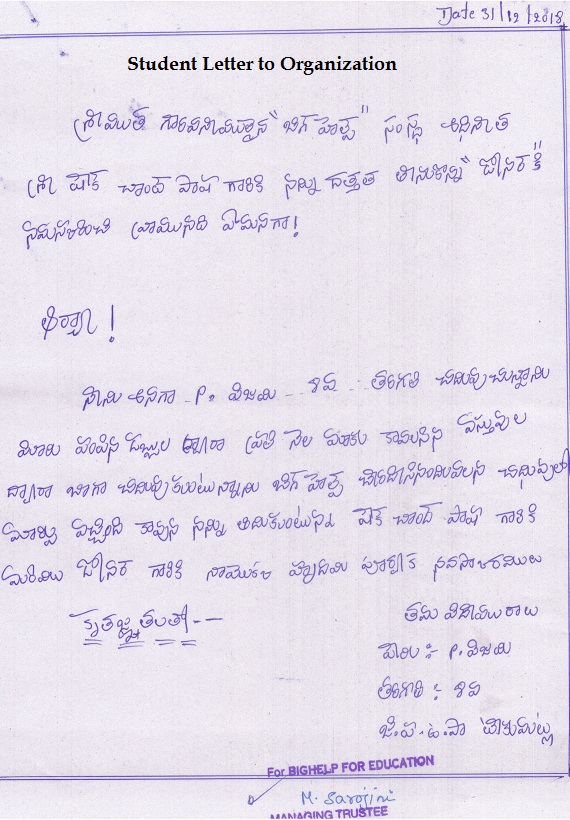 Date 31/12/2018
Student Letter to Organization
శ్రీయుత గౌరవనీయులైన "బిగ్ హెల్ప్" సంస్థ అధినేత
శ్రీ షేక్ చాంద్ పాష గారికి నన్ను దత్తత తీసుకొన్న "డోనర్ కి"
నమస్కరించి వ్రాయునది ఏమనగా!
ఆర్యా!
నేను అనగా P. విజయ తరగతి చదువుచున్నాను
మీరు పంపిన డబ్బుల ద్వారా ప్రతి నెల మాకు కావలసిన వస్తువుల
ద్వారా బాగా చదువుకుంటున్నాను బిగ్ హెల్ప్ చదువులో
మార్పు వచ్చింది కావున నన్ను ఆదుకుంటున్న షేక్ చాంద్ పాష గారికి
మరియు డోనర్ గారికి నా యొక్క హృదయ పూర్వక నమస్కారములు
కృతజ్ఞతలతో --
తమ విధేయురాలు
పేరు :- P. విజయ
తరగతి :-
జి.ప.ఉ.పా
For BIGHELP FOR EDUCATION
M. Sarojini
MANAGING TRUSTEE